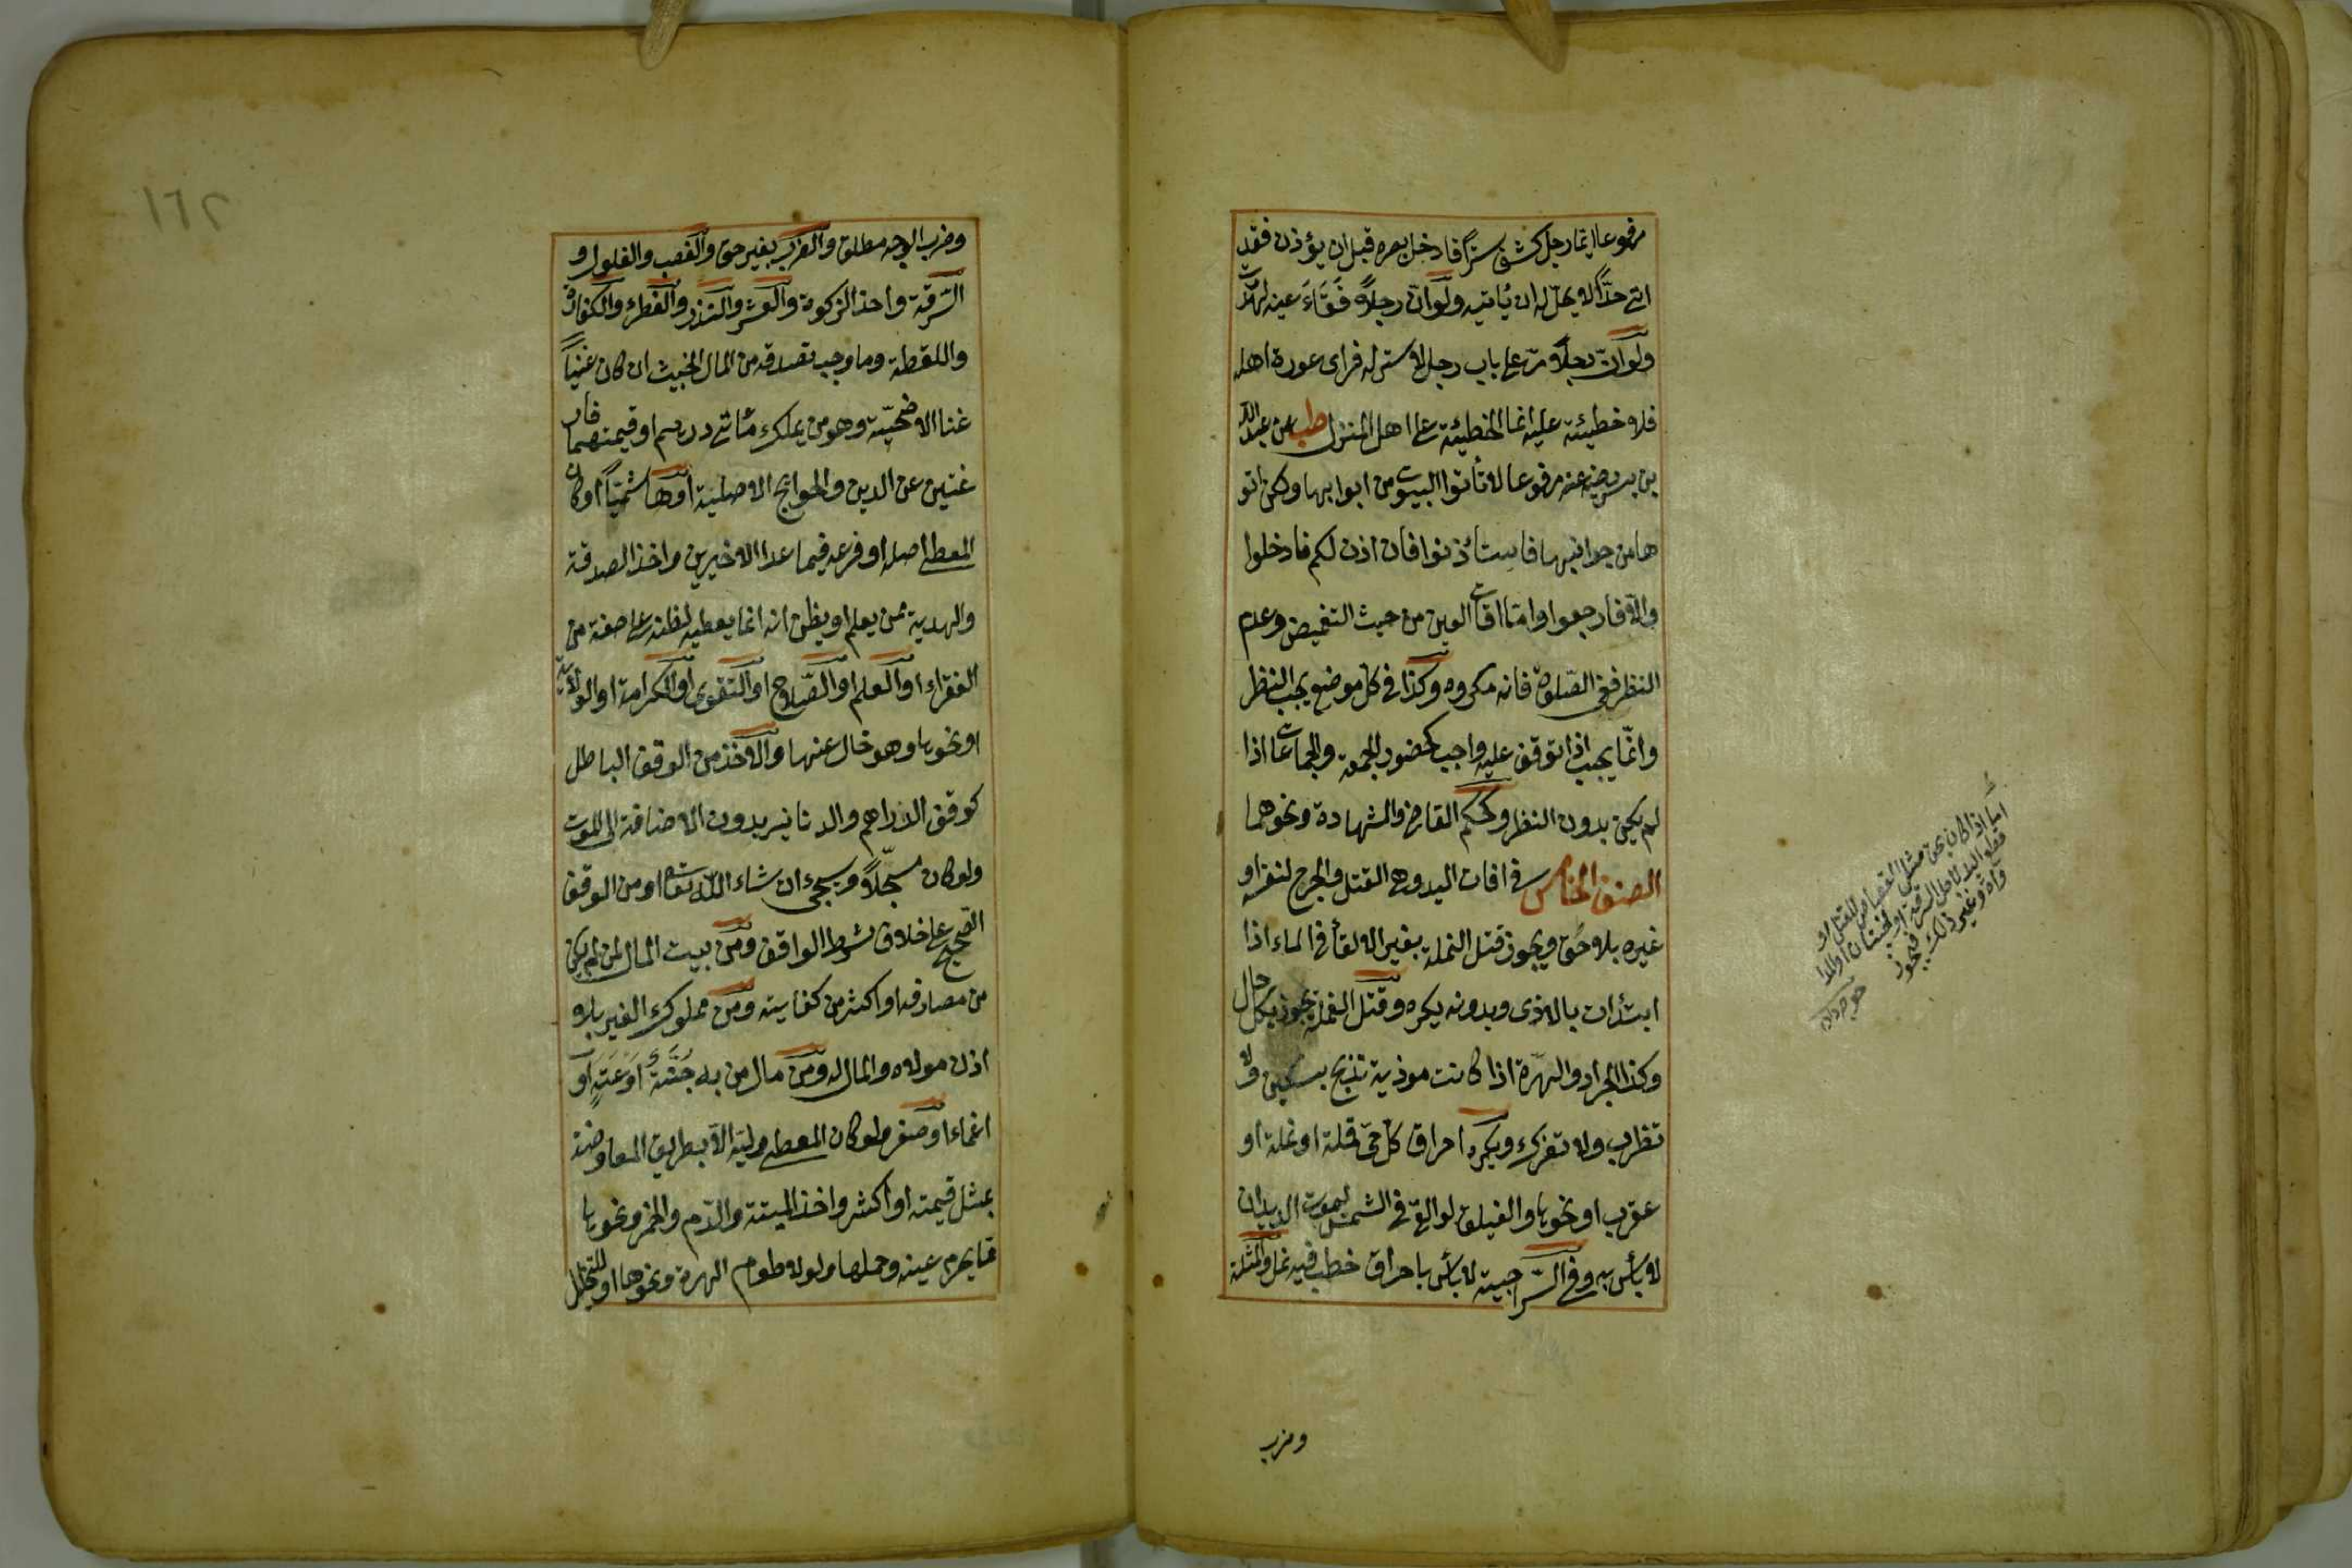 مرفوعا ايما رجل كشف سترًا فادخل بصره قبل ان يؤذن فقد
اتى حدًّا لا يحلّ له ان يأتيه ولو انّ رجلاً فَقَاءَ عينه لهدرت
ولو انّ رجلاً مرّ على باب رجل لا ستر له فرأى عورة اهله
فلا خطيئة عليه انما الخطيئة على اهل المنزل طب عن عبد الله
بن بسر رضي عنه مرفوعا لا تأتوا البيوت من ابوابها ولكن ائتو
ها من جوانبها فاستأذنوا فان اذن لكم فادخلوا
والّا فارجعوا وامّا افات العين من حيث التغميض وعدم
النظر ففي الصّلوة فانه مكروه وكذا في كل موضع يجب النظر
وانّما يجب اذا توقف عليه واجب كحضور الجمعة والجماعات اذا
لم يكن بدون النظر وكحكم القاضي والشهادة ونحوهما
الصنف الخامس في افات اليد وهي القتل والجرح لنفسه او
غيره بلا حَق ويجوز قتل النملة بغير الالقاء في الماء اذا
ابتدأت بالاذى وبدونه يكره وقتل القملة يجوز بكل حال
وكذا الجراد والهرّة اذا كانت موذية تذبح بسكين ولا
تضرب ولا تفرك ويكره احراق كلّ حيّ قملة او نملة او
عقرب او نحوها والفيلق لو القي في الشمس ليموت الديدان
لا بأس به وفي السّراجية لا بأس باحراق حطب فيه نمل والمثلة
وضرب
اما اذا كان بحق مثل القصاص للقتل و
وغير ذلك فيجوز
خواجه زاده
١٦٢
وضرب الوجه مطلق والضرب بغير حق والغصب والغلول و
السّرقة واخذ الزكوة والعشر والنذر والفطرة والكفارة
واللقطة وما وجب تصدقه من المال الخبيث ان كان غنيًّا
غنا الاضحيّة وهو من يملك مأتي درهم او قيمتهما فار
غتين عن الدين والحوايج الاصلية او هاشميّا او كان
المعطي اصله او فرعه فيما عدا الاخيرين واخذ الصدقة
والهدية ممن يعلم او يظن انه انما يعطيه لظنه على صفة من
الفقراء او العلم او الصّلاح او التقوى او الكرامة او الولاية
او نحوها وهو خال عنها والاخذ من الوقف الباطل
كوقف الدراهم والدنانير بدون الاضافة الى الموت
ولو كان مسجّلاً وسيجيء ان شاء الله تعالى او من الوقف
الصّحيح على خلاف شرط الواقف ومن بيت المال لمن لم يكن
من مصارفه او اكثر من كفايته ومن مملوك الغير بلا
اذن مولاه والمال له ومن مال من به جنَّة او عَتَهٍ او
اغماء او صغر ولو كان المعطي وليّه الّا بطريق المعاوضة
بمثل قيمته او اكثر واخذ الميتة والدّم والخمر ونحوها
مما يحرم عينه وحملها ولو لاطعام الهرة ونحوها او للتخليل